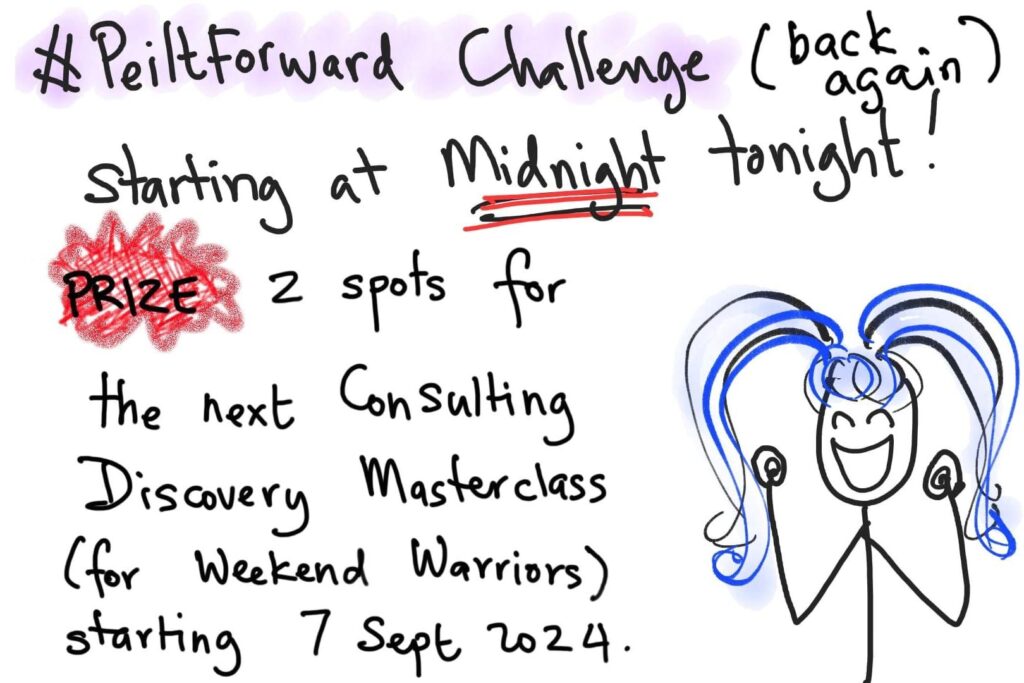 #PeiltForward Challenge (back again)
starting at Midnight tonight!
PRIZE 2 spots for
the next Consulting
Discovery Masterclass
(for Weekend Warriors)
starting 7 Sept 2024.